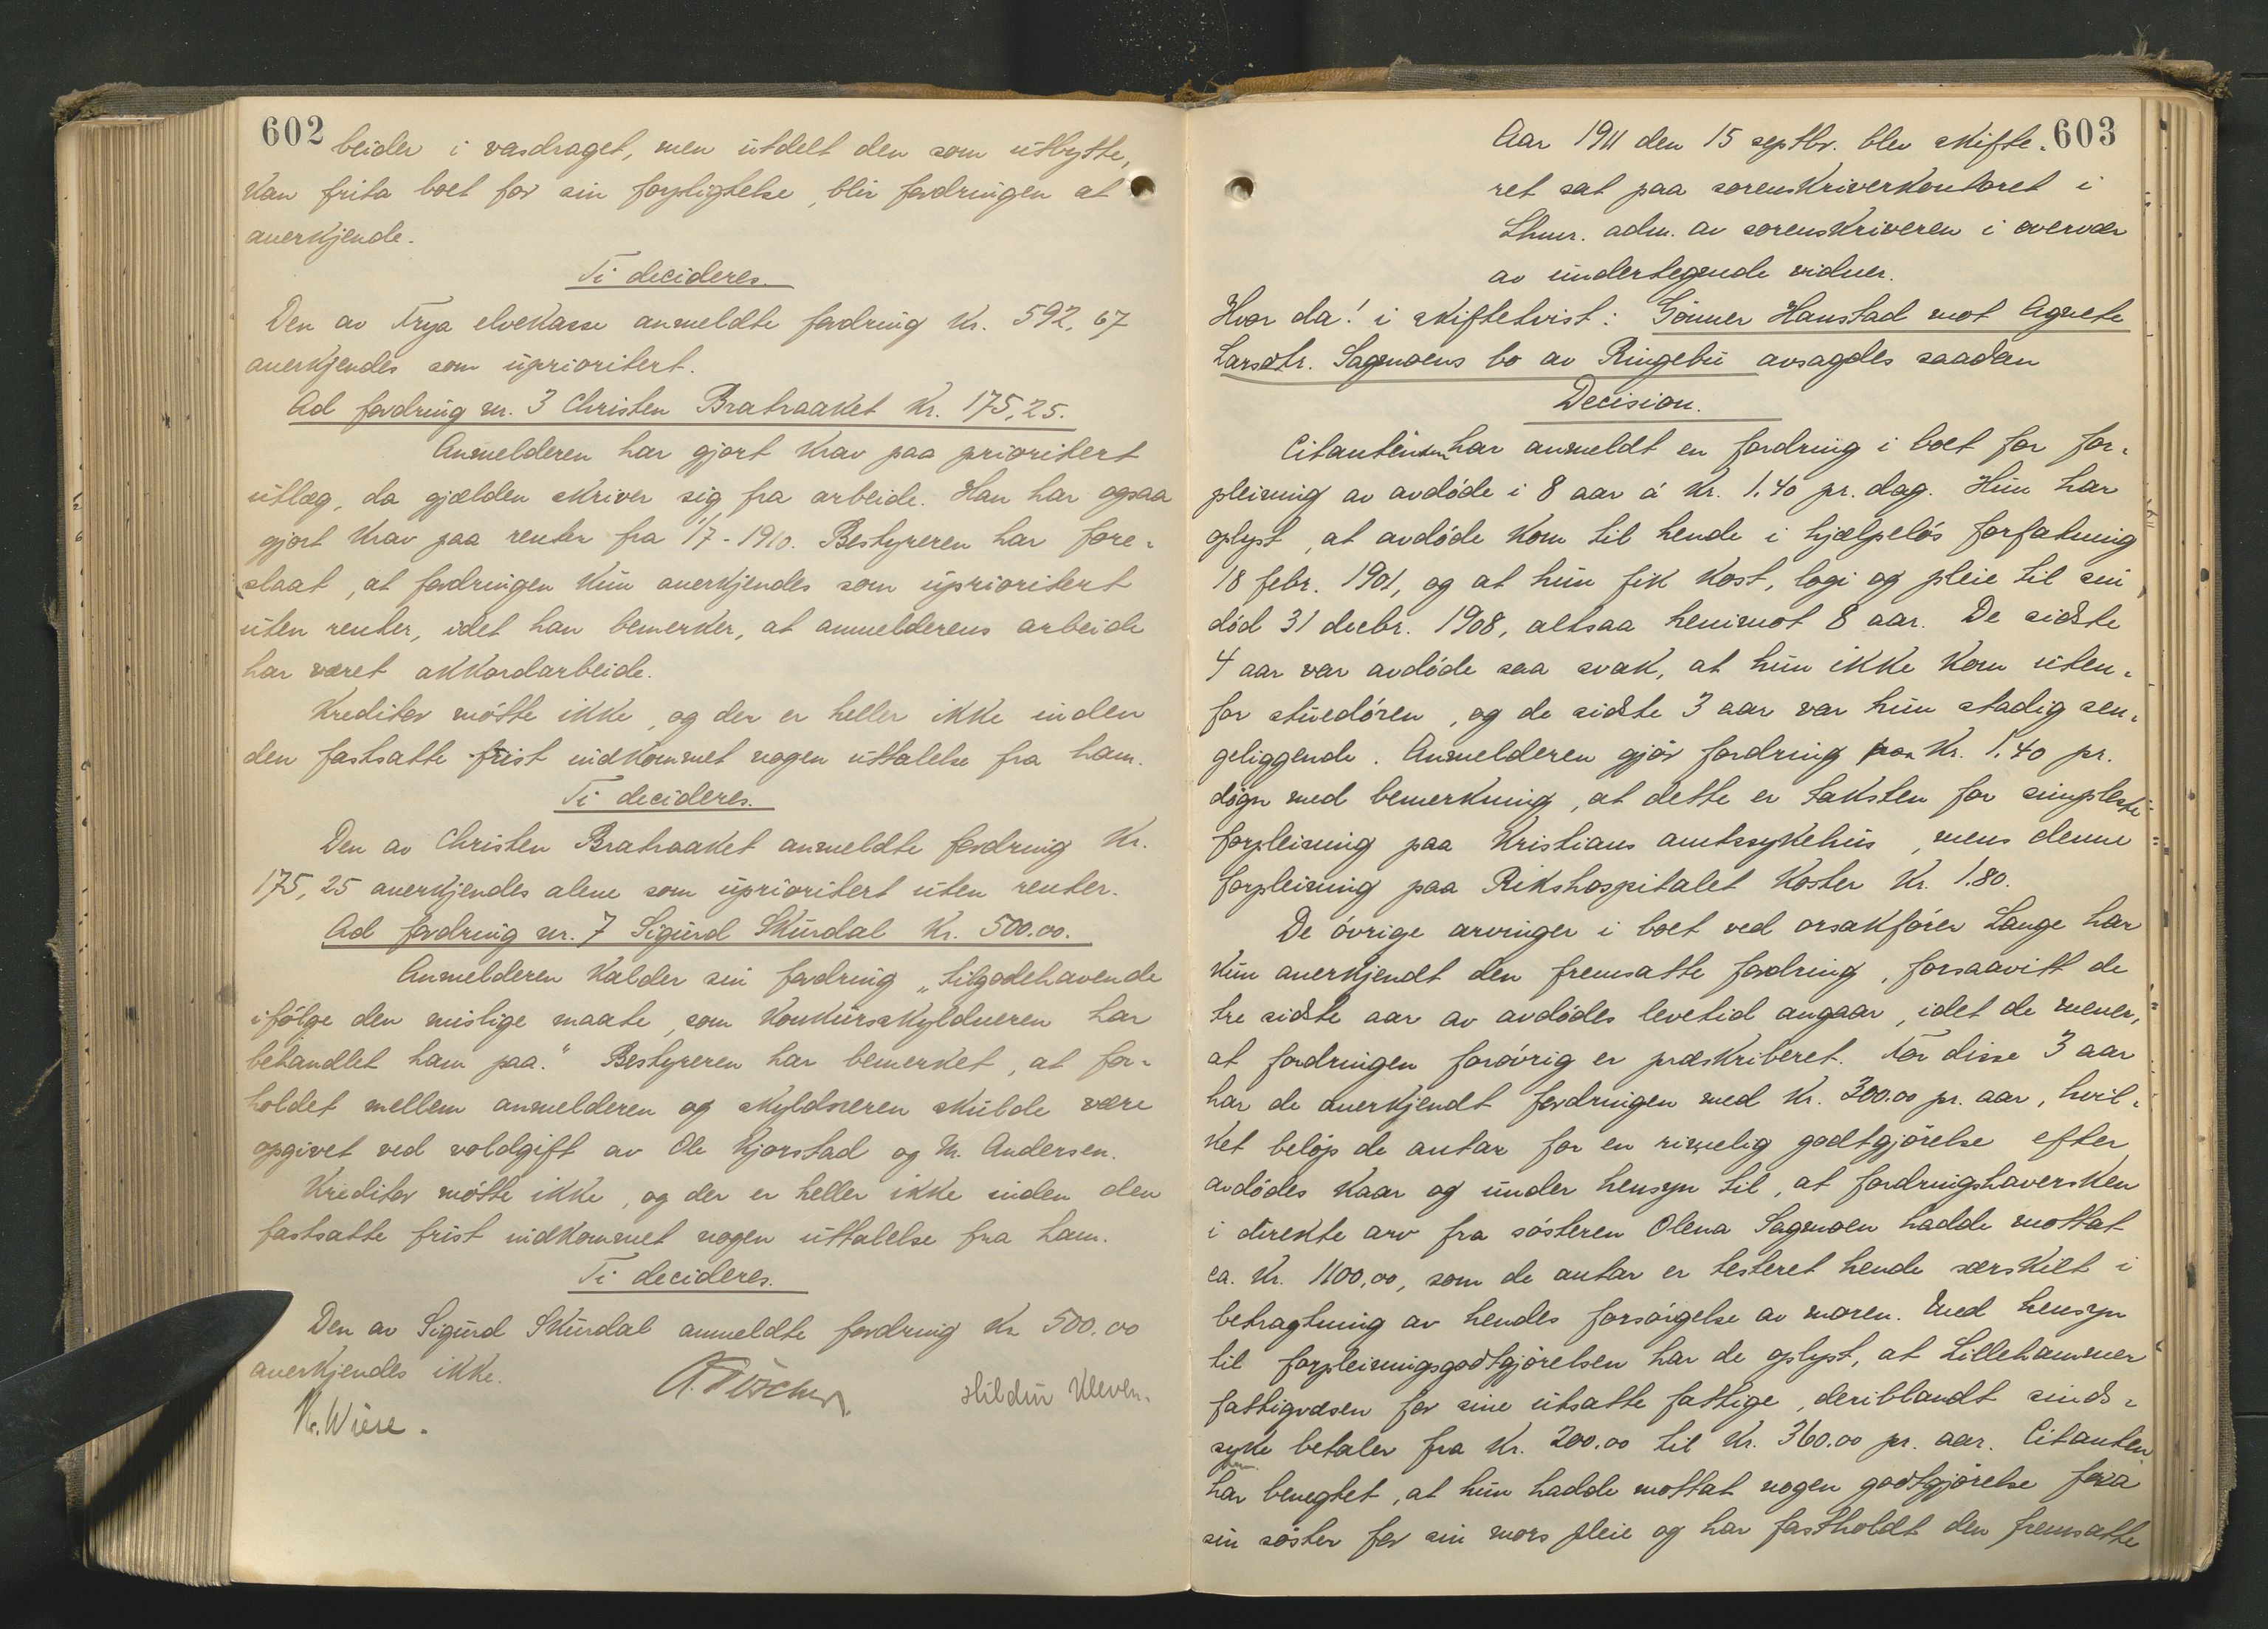 602
beider i vasdraget, men utdelt den som utbytte,
kan frita boet for sin forpligtelse, blir fordringen at
anerkjende.
Ti decideres.
Den av Frya elvekasse anmeldte fordring kr. 592,67
anerkjendes som uprioritert.
Ad fordring nr. 3 Christen Bratraaket kr. 175,25.
Anmelderen har gjort krav paa prioritert
utlæg, da gjælden skriver sig fra arbeide. Han har ogsaa
gjort krav paa renter fra 1/7-1910. Bestyreren har fore-
slaat, at fordringen kun anerkjendes som uprioritert
uten renter, idet han bemerker, at anmelderens arbeide
har været akkordarbeide.
Kreditor møtte ikke, og der er heller ikke inden
den fastsatte frist indkommet nogen uttalelse fra ham.
Ti decideres.
Den av Christen Bratraaket anmeldte fordring kr.
175,25 anerkjendes alene som uprioritert uten renter.
Ad fordring nr. 7 Sigurd Skurdal kr. 500.00.
Anmelderen kalder sin fordring „tilgodehavende
ifølge den mislige maate, som konkursskyldneren har
behandlet ham paa." Bestyreren har bemerket, at for-
holdet mellem anmelderen og skyldneren skulde være
opgivet ved voldgift av Ole Kjorstad og M. Andersen.
Kreditor møtte ikke, og der er heller ikke inden den
fastsatte frist indkommet nogen uttalelse fra ham.
Ti decideres.
Den av Sigurd Skurdal anmeldte fordring kr 500.00
anerkjendes ikke.
Hildur Kleven.
603
Aar 1911 den 15 septbr. blev skifte-
ret sat paa sorenskriverkontoret i
Lhmr. adm. av sorenskriveren i overvær
av undertegnede vidner.
Hvor da! i skiftetvist: Gunner Hanstad mot Agnete
Larsdtr. Sagmoens bo av Ringebu avsagdes saadan
Decision.
Citantinden har anmeldt en fordring i boet for for-
pleining av avdøde i 8 aar á kr. 1.40 pr. dag. Hun har
oplyst, at avdøde kom til hende i hjælpeløs forfatning
18 febr. 1901, og at hun fik kost, logi og pleie til sin
død 31 decbr. 1908, altsaa henimot 8 aar. De sidste
4 aar var avdøde saa svak, at hun ikke kom uten-
for stuedøren, og de sidste 3 aar var hun stadig sen-
geliggende. Anmelderen gjør fordring paa kr. 1.40 pr.
døgn med bemerkning, at dette er taksten for simpleste
forpleining paa Kristians amtssykehus, mens denne
forpleining paa Rikshospitalet koster kr. 1.80.
De øvrige arvinger i boet ved orsakfører Lange har
kun anerkjendt den fremsatte fordring, forsaavitt de
tre sidste aar av avdødes levetid angaar, idet de mener,
at fordringen forøvrig er præskriberet. For disse 3 aar
har de anerkjendt fordringen med kr. 300.00 pr. aar, hvil-
ket beløp de antar for en rimelig godtgjørelse efter
avdødes kaar og under hensyn til, at fordringshaversken
i direkte arv fra søsteren Olena Sagmoen hadde mottat
ca. kr. 1100,00, som de antar er testeret hende særskilt i
betragtning av hendes forsørgelse av moren. Med hensyn
til forpleiningsgodtgjørelsen har de oplyst, at Lillehammer
fattigvæsen for sine utsatte fattige, deriblandt sinds-
syke betaler fra kr. 200.00 til kr. 360.00 pr. aar. Citanten
har benegtet, at hun hadde mottat nogen godtgjørelse fra
sin søster for sin mors pleie og har fastholdt den fremsatte